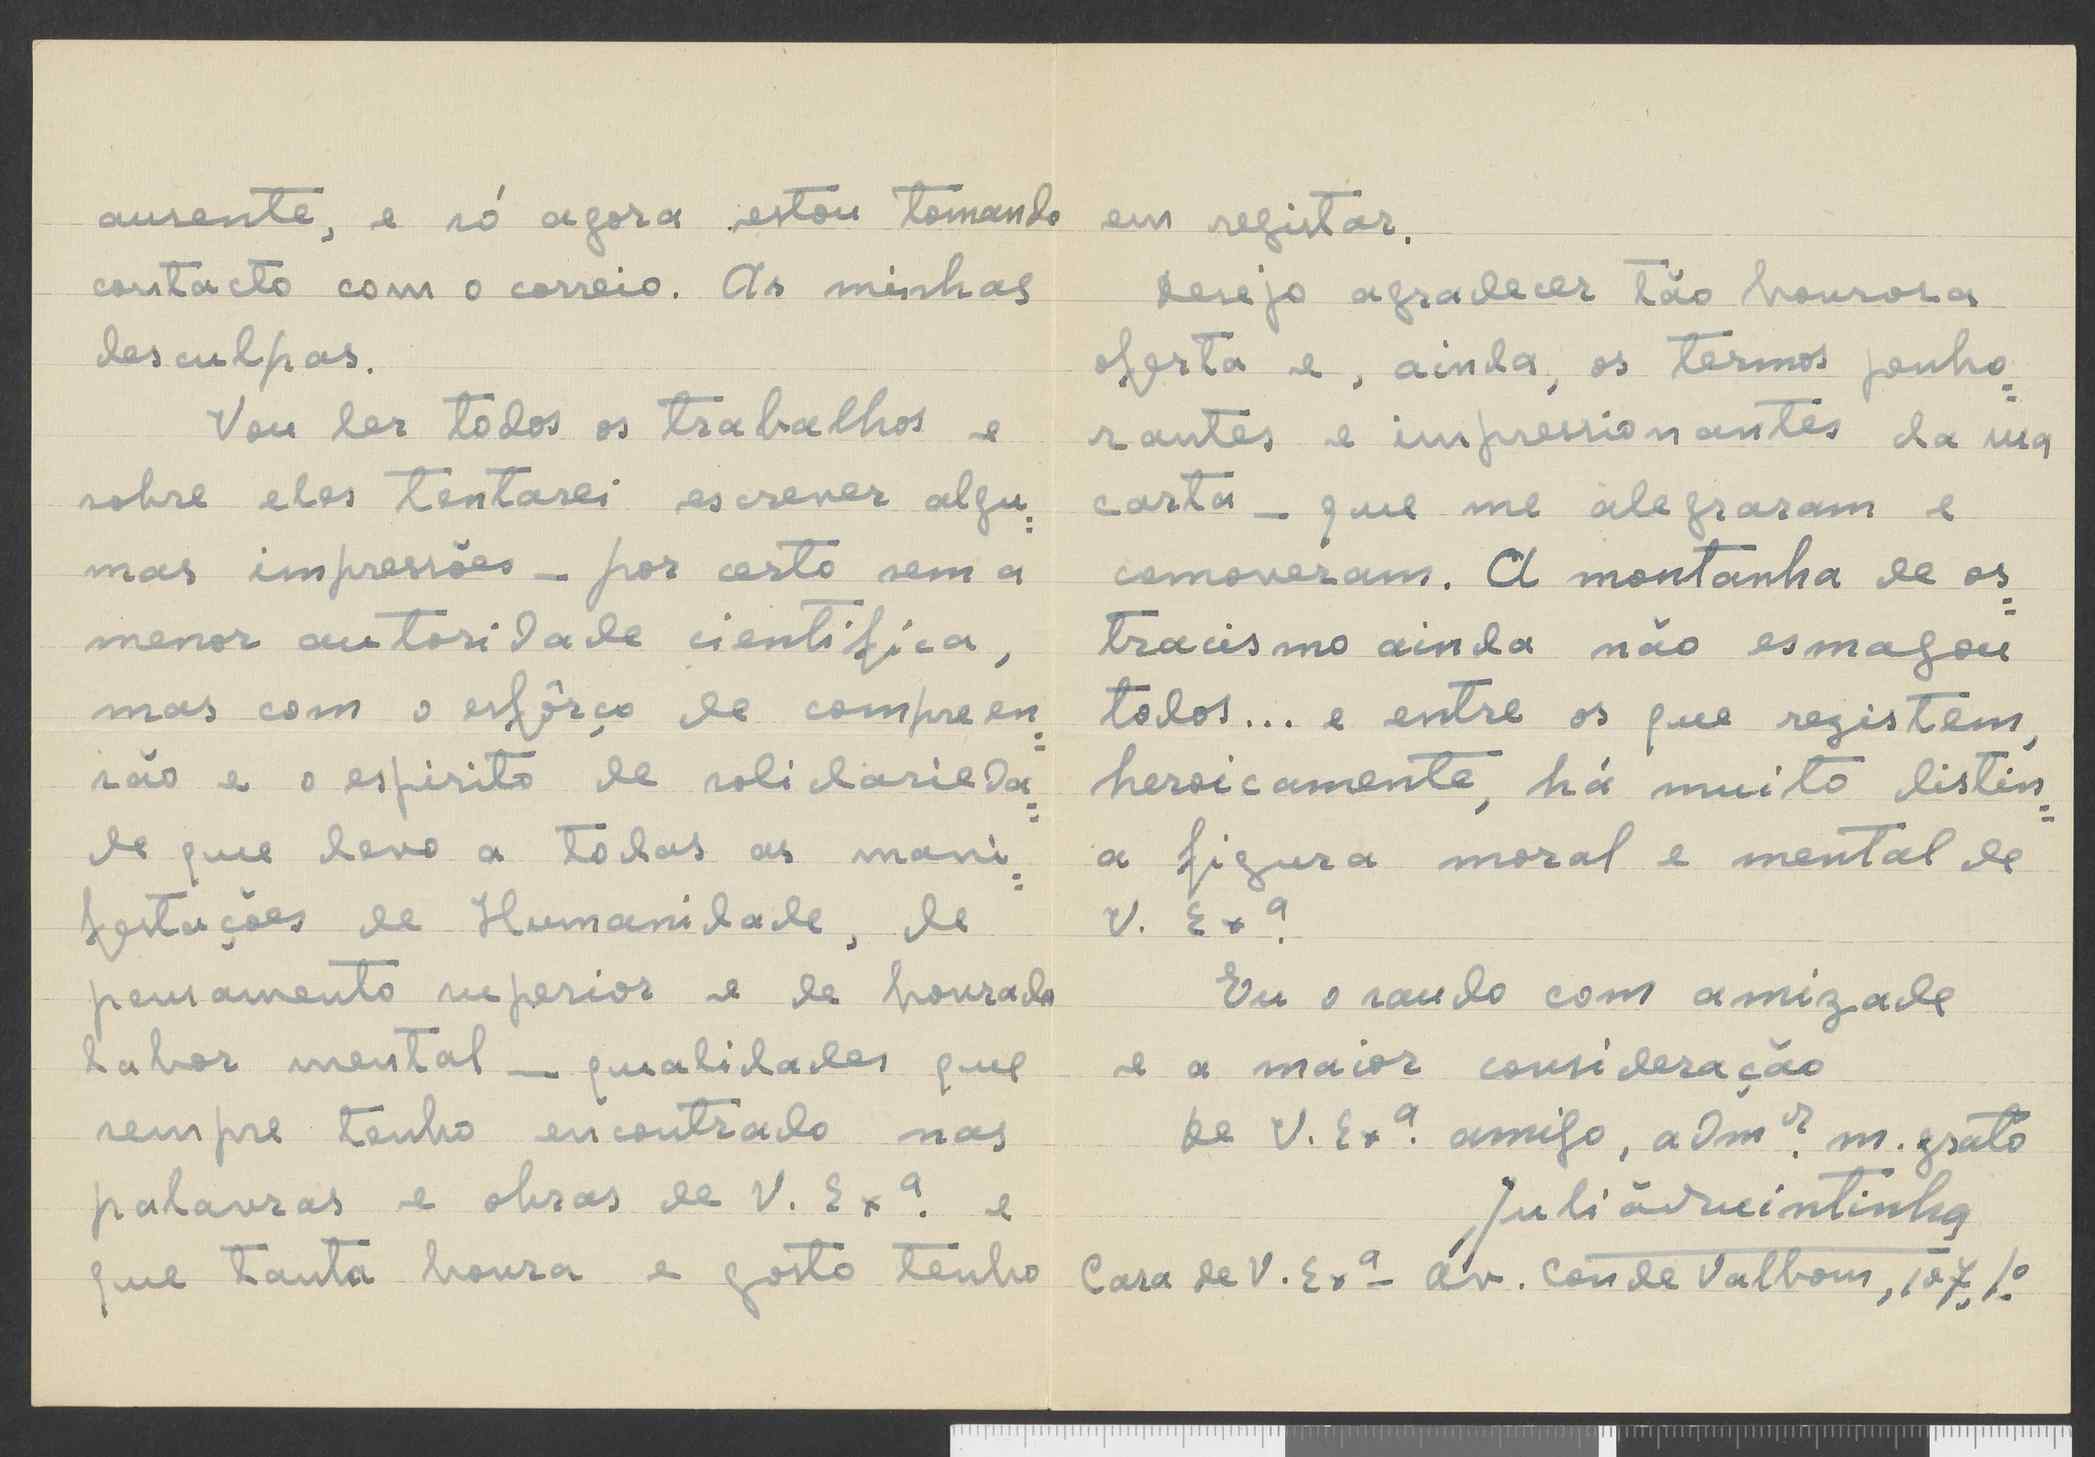 ausente, e só agora estou tomando
contacto com o correio. As minhas
desculpas.
Vou ler todos os trabalhos e
sobre eles tentarei escrever algu=
mas impressões – por certo sem a
menor autoridade cientifica,
mas com o esfôrço de compreen=
são e o espirito de solidarieda=
de que devo a todas as mani=
festações de Humanidade, de
pensamento superior e de honrado
labor mental – qualidades que
sempre tenho encontrado nas
palavras e obras de V. Exª. e
que tanta honra e gosto tenho
em registar.
Desejo agradecer tão honrosa
oferta e, ainda, os termos penho=
rantes e impressionantes da sua
carta – que me alegraram e
comoveram. A montanha de os=
tracismo ainda não esmagou
todos... e entre os que registem,
heroicamente, há muito distin=
a figura moral e mental de
V. Exª.
Eu o saudo com amizade
e a maior consideração
De V. Exª. amigo, admr. m. grato
Julião Quintinha
Casa de V. Exª – Av. Conde Valbom, 107, 1º